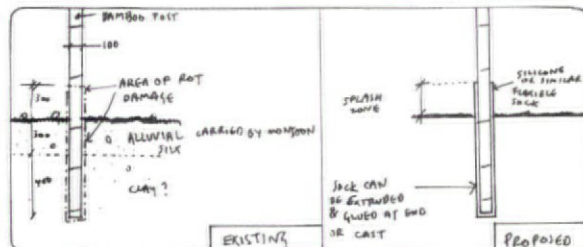 BAMBOO POST
100
AREA OF ROT
DAMAGE
300
300
ALLUVIAL
SILT
CARRIED BY MONSOON
CLAY?
EXISTING
SPLASH
ZONE
SILICONE
OR SIMILAR
FLEXIBLE
SOCK
SOCK CAN
BE EXTRUDED
& GLUED AT END
OR CAST
PROPOSED